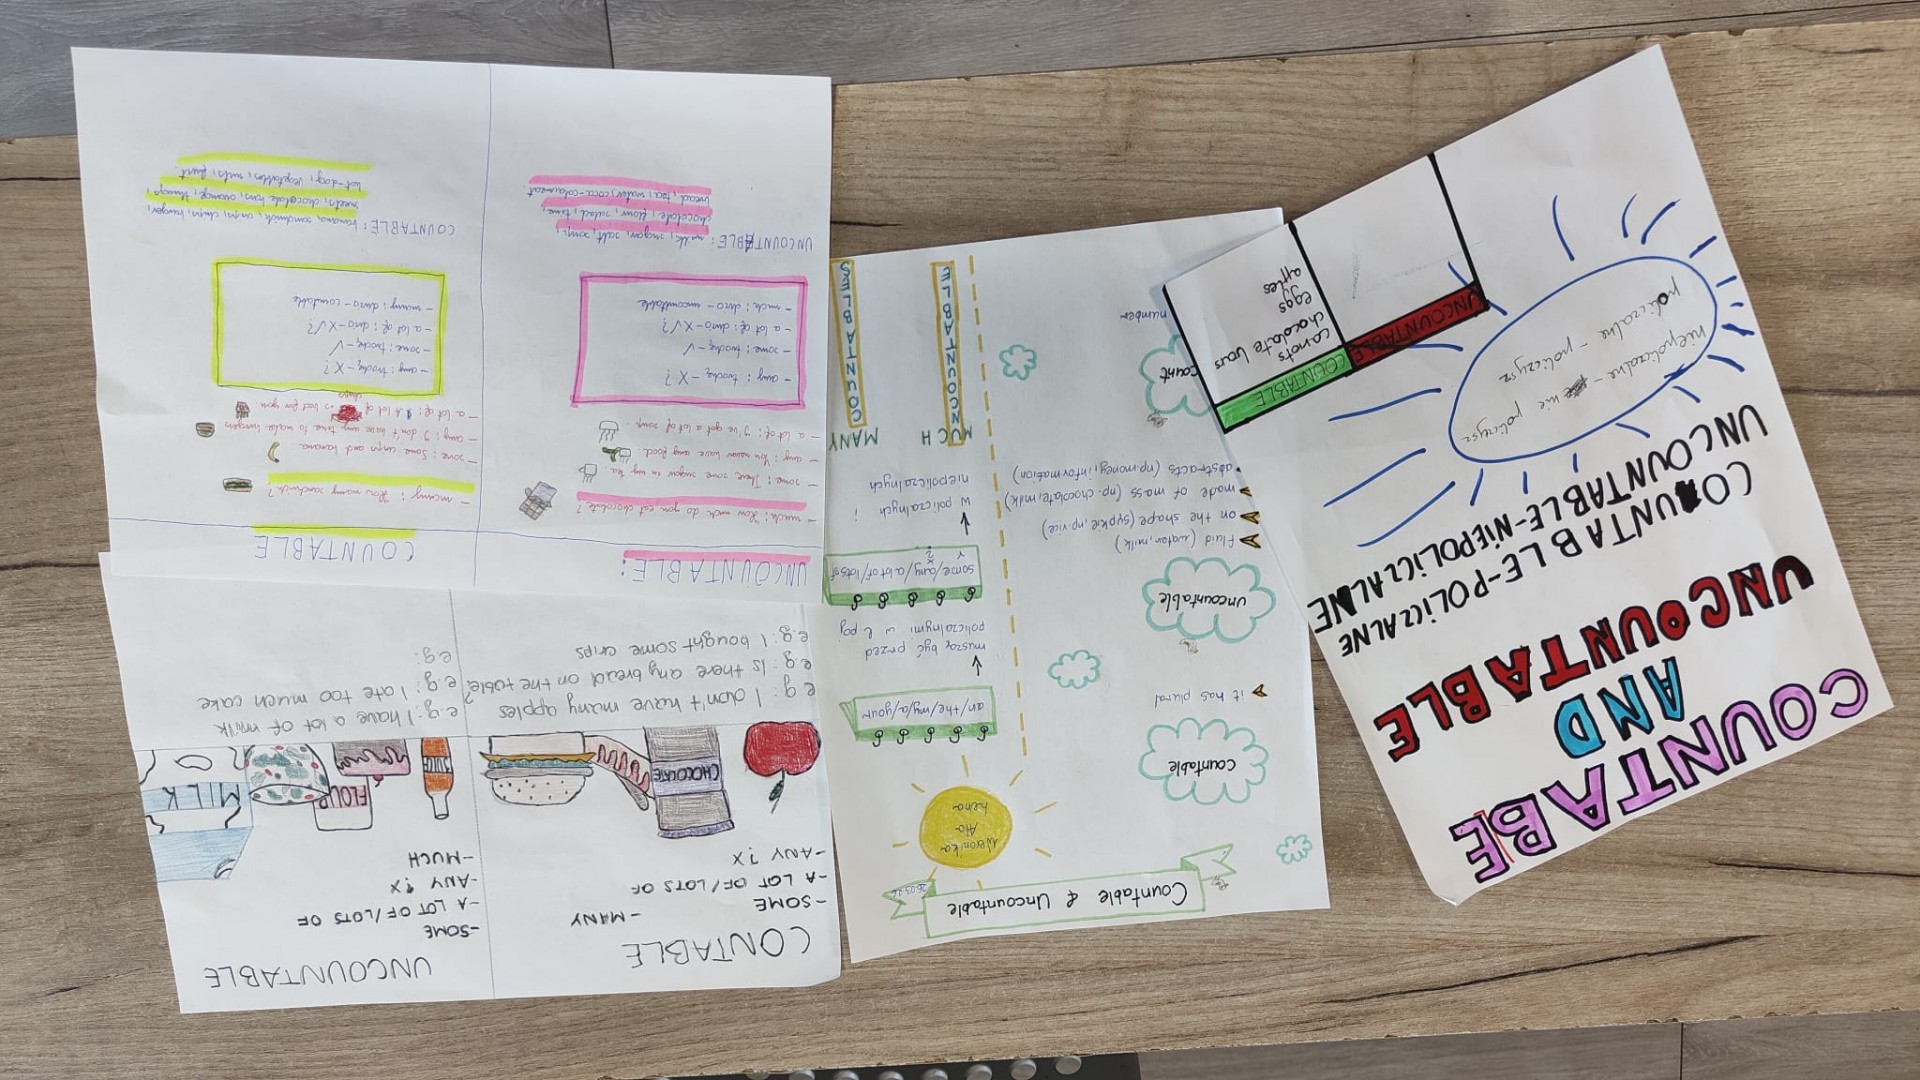 COUNTABE
AND
UNCOUNTABLE
COUNTABLE-POLICZALNE
UNCOUNTABLE-NIEPOLICZALNE
niepoliczalne - nie policzysz
policzalne - policzysz
COUNTABLE
UNCOUNTABLE
carrots
chocolate bars
eggs
apples
Countable & Uncountable
26.03.26
Weronika
Ala
Lena
Countable
it has plural
uncountable
fluid (water, milk)
on the shape (sypkie, np. rice)
made of mass (np. chocolate, milk)
abstracts (np. money, information)
count
number
an/the/my/a/your
muszą być przed
policzalnymi w l poj
some/any/a lot of/lots of
? X
w policzalnych i
niepoliczalnych
MUCH
MANY
UNCOUNTABLE
COUNTABLES
CONTABLE
-SOME
-MANY
-A LOT OF/LOTS OF
-ANY ? X
CHOCOLATE
e.g: I didn't have many apples
e.g: Is there any bread on the table?
e.g: I bought some crips
UNCOUNTABLE
-SOME
-A LOT OF/LOTS OF
-ANY ? X
-MUCH
MILK
FLOUR
JUICE
e.g: I have a lot of milk
e.g: I ate too much cake
e.g:
UNCOUNTABLE:
- much: How much do you eat chocolate?
- some: There some sugar in my tea.
- any: You never have any food.
- a lot of: I've got a lot of soup.
- any: trochę - X - ?
- some: trochę - V
- a lot of: dużo - X V ?
- much: dużo - uncountable
UNCOUNTABLE: milk, sugar, salt, soup,
chocolate, flour, salad, time,
bread, tea, water, coca-cola, meat
COUNTABLE
- many: How many sandwich?
- some: Some crips and banana.
- any: I don't have any time to make burgers
- a lot of: A lot of is bad for you.
- any: trochę - X ?
- some: trochę - V
- a lot of: dużo - X V ?
- many: dużo - countable
COUNTABLE: banana, sandwich, crips, chips, burger,
sweets, chocolate bars, orange, things,
hot-dog, vegetables, nuts, fruit